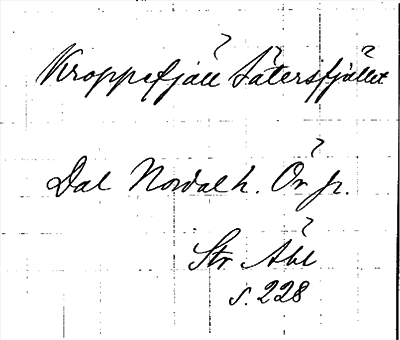 Kroppefjäll Sätersfjället
Dal Nordal h. Ör sn.
Str. Åbl
s. 228